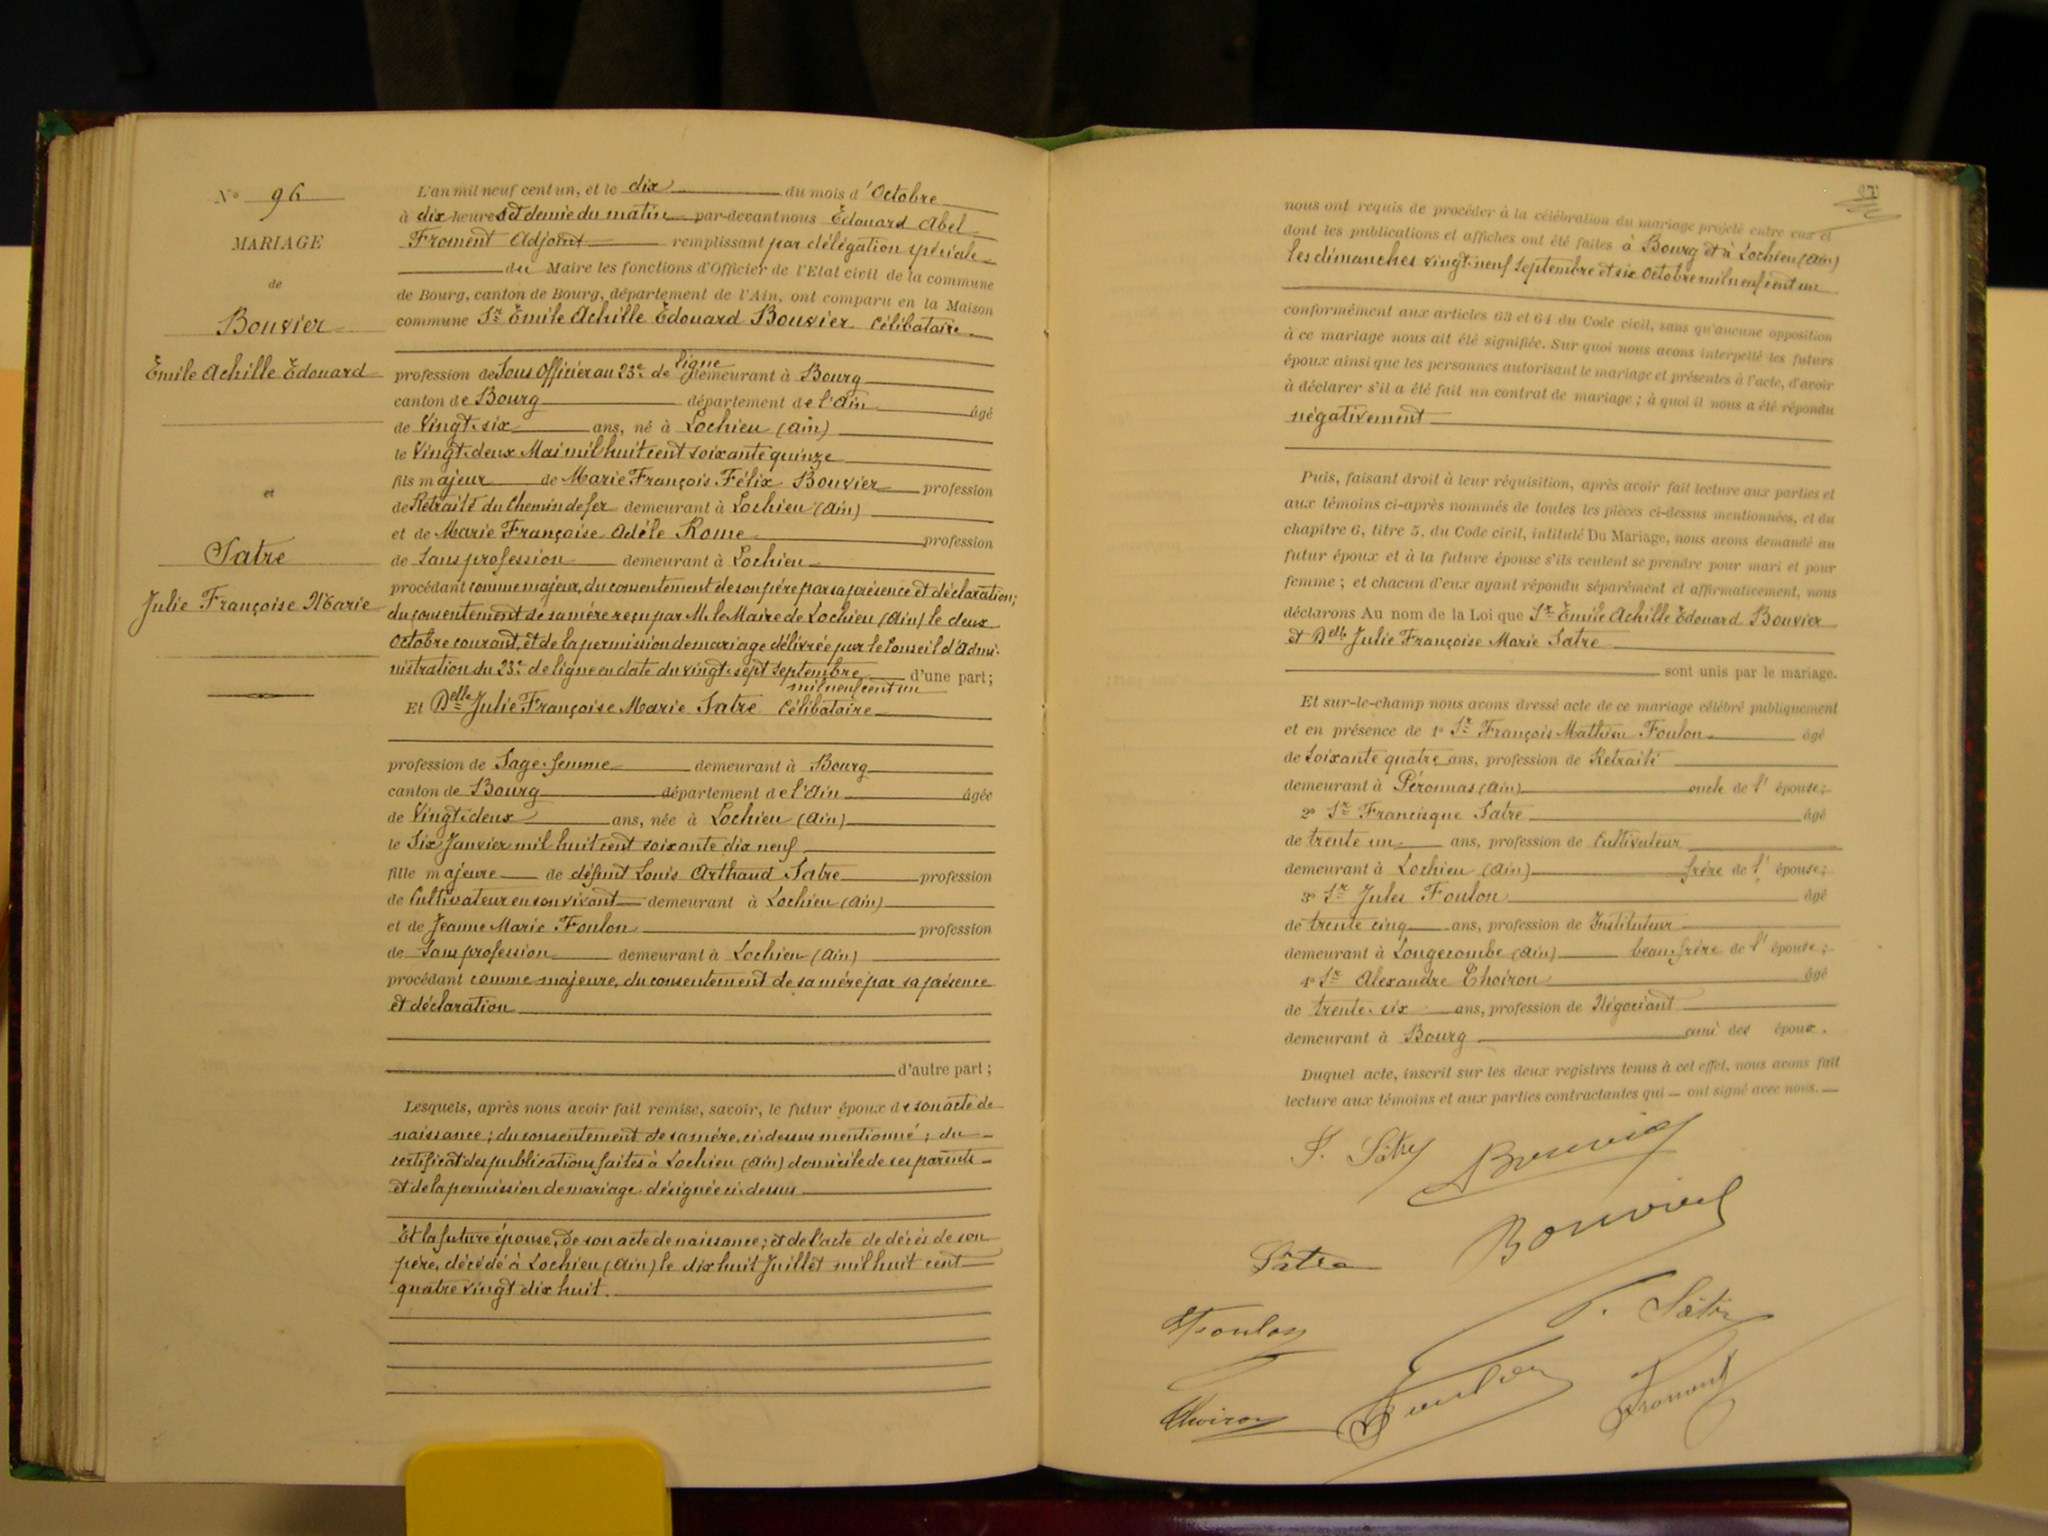 N° 96
MARIAGE
de
Bouvier
Emile Achille Edouard
et
Satre
Julie Françoise Marie
L'an mil neuf cent un, et le dix du mois d'Octobre
à dix heures et demie du matin par-devant nous Edouard Abel
Froment Adjoint remplissant par délégation spéciale
du Maire les fonctions d'Officier de l'Etat civil de la commune
de Bourg, canton de Bourg, département de l'Ain, ont comparu en la Maison
commune Sr Emile Achille Edouard Bouvier Célibataire
profession de Sous Officier au 23e de ligne demeurant à Bourg
canton de Bourg département de l'Ain âgé
de Vingt-six ans, né à Lochieu (Ain)
le Vingt-deux Mai mil huit cent soixante quinze
fils majeur de Marie François Félix Bouvier profession
de Retraité du Chemin de fer demeurant à Lochieu (Ain)
et de Marie Françoise Adèle Rome profession
de Sans profession demeurant à Lochieu
procédant comme majeur, du consentement de son père par sa présence et déclaration;
du consentement de sa mère reçu par M. le Maire de Lochieu (Ain) le deux
Octobre courant, et de la permission de mariage délivrée par le Conseil d'Admi-
nistration du 23e de ligne en date du vingt-sept Septembre d'une part;
mil neuf cent un
Et Delle Julie Françoise Marie Satre Célibataire
profession de Sage-femme demeurant à Bourg
canton de Bourg département de l'Ain âgée
de Vingt-deux ans, née à Lochieu (Ain)
le Six Janvier mil huit cent soixante dix neuf
fille majeure de défunt Louis Arthaud Satre profession
de Cultivateur en son vivant demeurant à Lochieu (Ain)
et de Jeanne Marie Foulon profession
de Sans profession demeurant à Lochieu (Ain)
procédant comme majeure, du consentement de sa mère par sa présence
et déclaration
d'autre part;
Lesquels, après nous avoir fait remise, savoir, le futur époux de son acte de
naissance; du consentement de sa mère, ci-dessus mentionné; du
certificat des publications faites à Lochieu (Ain) domicile de ses parents
et de la permission de mariage désignée ci-dessus
Et la future épouse, de son acte de naissance; et de l'acte de décès de son
père, décédé à Lochieu (Ain) le dix huit Juillet mil huit cent
quatre vingt dix huit.
nous ont requis de procéder à la célébration du mariage projeté entre eux et
dont les publications et affiches ont été faites à Bourg et à Lochieu (Ain)
les dimanches vingt-neuf Septembre et six Octobre mil neuf cent un
conformément aux articles 63 et 64 du Code civil, sans qu'aucune opposition
à ce mariage nous ait été signifiée. Sur quoi nous avons interpellé les futurs
époux ainsi que les personnes autorisant le mariage et présentes à l'acte, d'avoir
à déclarer s'il a été fait un contrat de mariage; à quoi il nous a été répondu
négativement
Puis, faisant droit à leur réquisition, après avoir fait lecture aux parties et
aux témoins ci-après nommés de toutes les pièces ci-dessus mentionnées, et du
chapitre 6, titre 5, du Code civil, intitulé Du Mariage, nous avons demandé au
futur époux et à la future épouse s'ils veulent se prendre pour mari et pour
femme; et chacun d'eux ayant répondu séparément et affirmativement, nous
déclarons Au nom de la Loi que Sr Emile Achille Edouard Bouvier
et Delle Julie Françoise Marie Satre
sont unis par le mariage.
Et sur-le-champ nous avons dressé acte de ce mariage célébré publiquement
et en présence de 1° Sr François Mathieu Foulon âgé
de Soixante quatre ans, profession de Retraité
demeurant à Péronnas (Ain) oncle de l'épouse;
2° Sr Francisque Satre âgé
de trente un ans, profession de Cultivateur
demeurant à Lochieu (Ain) frère de l'épouse;
3° Sr Jules Foulon âgé
de trente cinq ans, profession de Instituteur
demeurant à Longecombe (Ain) beau-frère de l'épouse;
4° Sr Alexandre Thoiron âgé
de trente-six ans, profession de Négociant
demeurant à Bourg ami des époux.
Duquel acte, inscrit sur les deux registres tenus à cet effet, nous avons fait
lecture aux témoins et aux parties contractantes qui — ont signé avec nous. —
J. Satre Bouvier
Bouvier
Satre
F. Satre
Foulon
Foulon
Froment
Thoiron